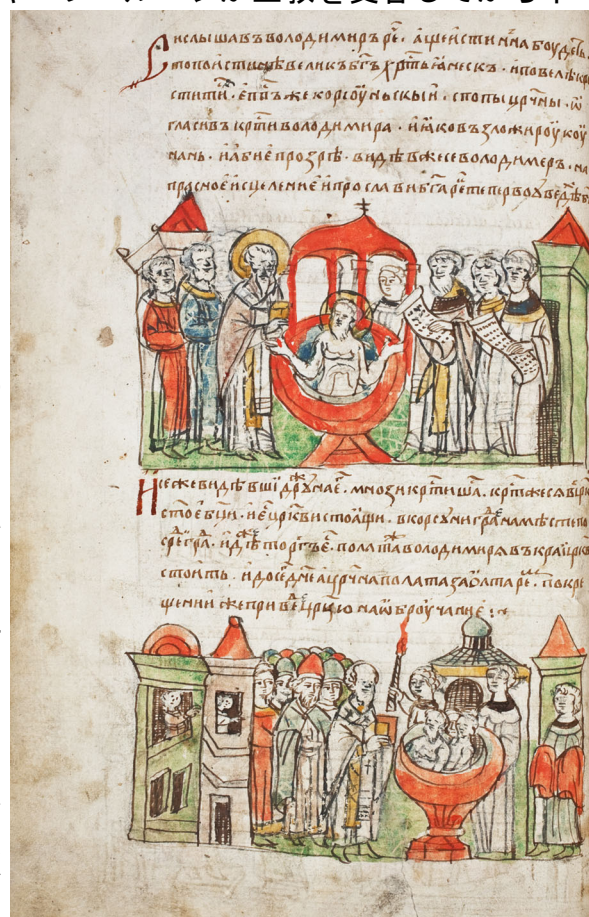 正教を受容してから
И слышавъ володимиръ ре҃. аще истинна боудеть.
то поистинѣ великъ б҃гъ хр҃тьꙗнескъ. и повелѣ кр
стити. еп҃пъ же корсоуньскыи. с попы цр҃чны. ѡ
гласивъ кр҃ти володимира. и ꙗко възложи роукоу
нань. и абие прозрѣ. видѣвже се володимеръ. на
прасное исцеление и прослави б҃га ре҃
И се же видѣвши дружина е҃. мнози кр҃тишѧ. кр҃тжесѧ въ
стое бц҃и. и е҃ црк҃ви стоꙗщи. в корсуни гра на мѣсте по
сре гра. идѣ торгъ. полата володимирѧ въ краи црк҃в
стоить. и до се дне а цр҃чна полата за олтаре. по кре
щении же приве цр҃цю на ѡброучание :·